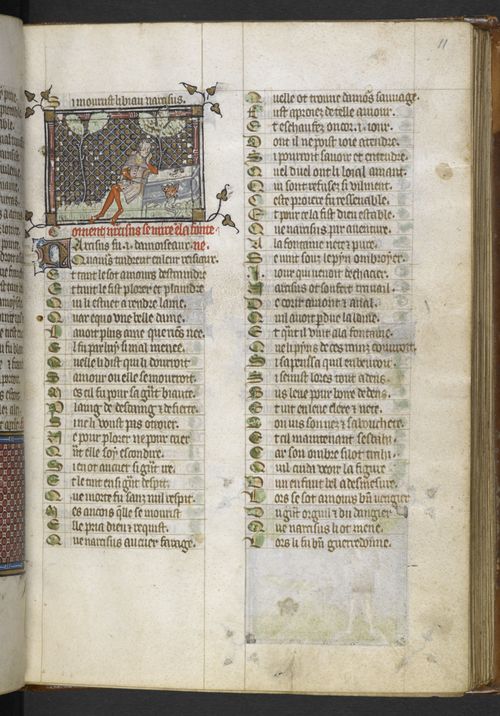 11
Si mourust li biau narcisus.
Coment narcisus se mire e la fonteine
Narcisus fu .i. damoiseaux
Quamors tindrent en leur resiaux.
Et tant le sot amours destraindre
Et tant le fist plorer et plaindre
Quil li estuet a rendre lame.
Quar equo une bele dame.
Lauoit plus ame que riens nee.
El fu par luy si mal menee.
Quelle li dist quil li donroit
Samour ou elle se morroit.
Mes cil fu pour sa grant biaute.
Plaing de desdaing et de fierte.
Si ne li voust pas otroier.
Ne pour plorer ne pour crier
Quant elle soy escondire.
Si en ot au cuer si grant ire.
Et le tint en si grant despit.
Que morte fu sanz nul respit.
Mes ancois quele se mourist
Elle pria dieu et requist.
Que narcisus au cuer farage.
Quelle ot trouue damors sauuage.
Fust aproiez de telle amour.
Et eschaufez encor .i. iour.
Dont il ne peust ioie atendre.
Si pourroit sauoir et entendre.
Quel duel ont li loial amant.
Qui sont refuse si vilment.
Ceste proiere fu resnable.
Et pour ce la fist dieu estable.
Que narcisus par auenture.
A la fontaine nete et pure.
Se vint souz le pyn onbroyer.
.I. iour qui venoit de chacier.
Narcisus ot soufert trauail
De courir amont et aual.
Quil auoit perdue lalaine.
Et quant il vint a la fontaine.
Que li pyns de ces rains couuroit.
Si sapensa quil en beuroit.
Si se mist lores tout adens.
Et tint en leue clere et nete.
Et cil maintenant sesbahi.
Car son ombre si lot trahi.
Quil cuida veoir la figure
Dun enfant bel a desmesure.
Lors se sot amours bien uengier
Du grant orguil et du dangier
Que narcisus li ot mene.
Lors li fu bien guerredonne.